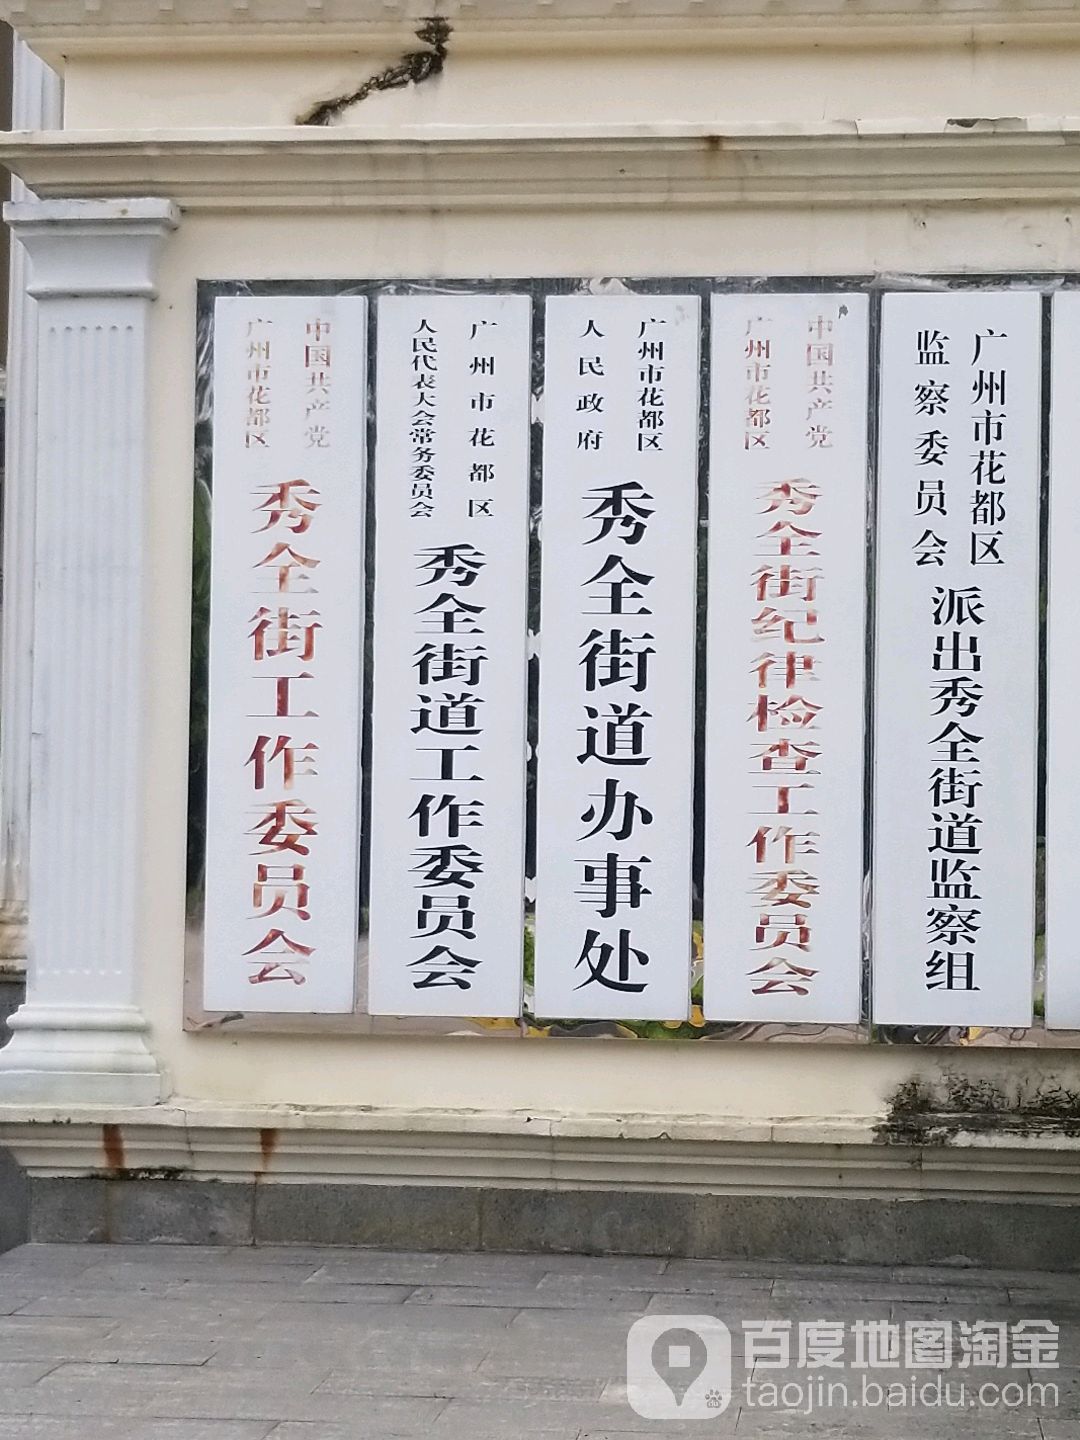 中国共产党
广州市花都区
秀全街工作委员会
广州市花都区
人民代表大会常务委员会
秀全街道工作委员会
广州市花都区
人民政府
秀全街道办事处
中国共产党
广州市花都区
秀全街纪律检查工作委员会
广州市花都区
监察委员会
派出秀全街道监察组
百度地图淘金
taojin.baidu.com